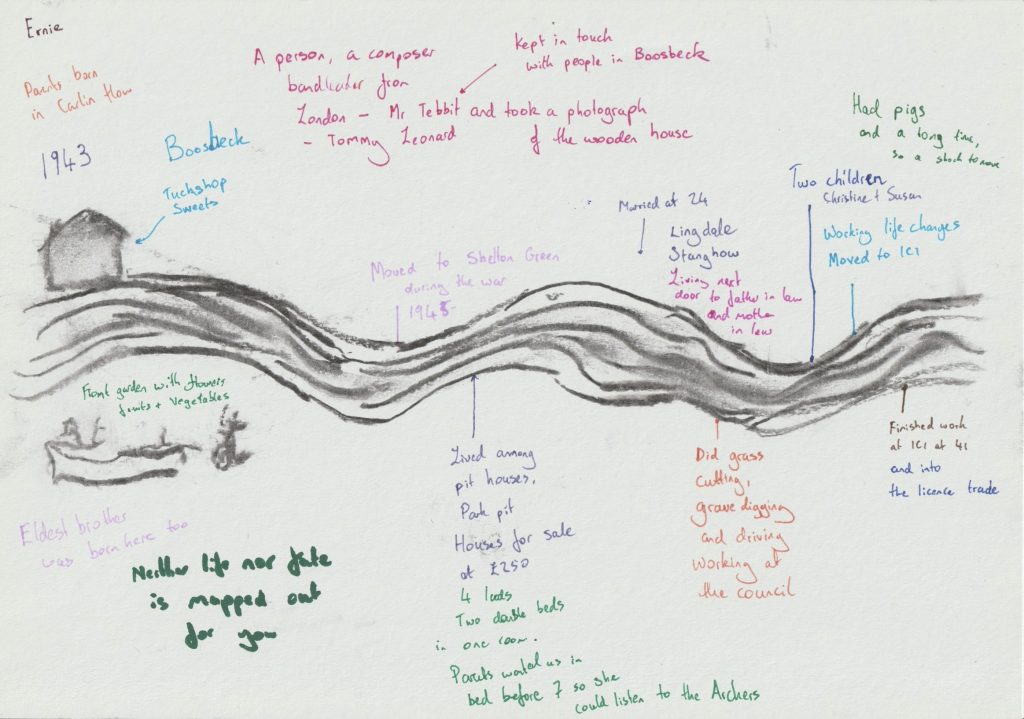 Ernie
Parents born
in Carlin How
1943
Boosbeck
Tuckshop
Sweets
A person, a composer
bandleader from
London - Mr Tebbit and took a photograph
- Tommy Leonard of the wooden house
Kept in touch
with people in Boosbeck
Had pigs
and a long time,
so a shock to move
Moved to Skelton Green
during the war
1945
Married at 24
Lingdale
Stanghow
Living next
door to father in law
and mother
in law
Two children
Christine + Susan
Working life changes
Moved to ICI
Front garden with flowers
fruits + Vegetables
Eldest brother
was born here too
Neither life nor fate
is mapped out
for you
Lived among
pit houses,
Park pit
Houses for sale
at £250
4 lads
Two double beds
in one room.
Parents wanted us in
bed before 7 so she
could listen to the Archers
Did grass
cutting,
grave digging
and driving
Working at
the council
Finished work
at ICI at 41
and into
the licence trade